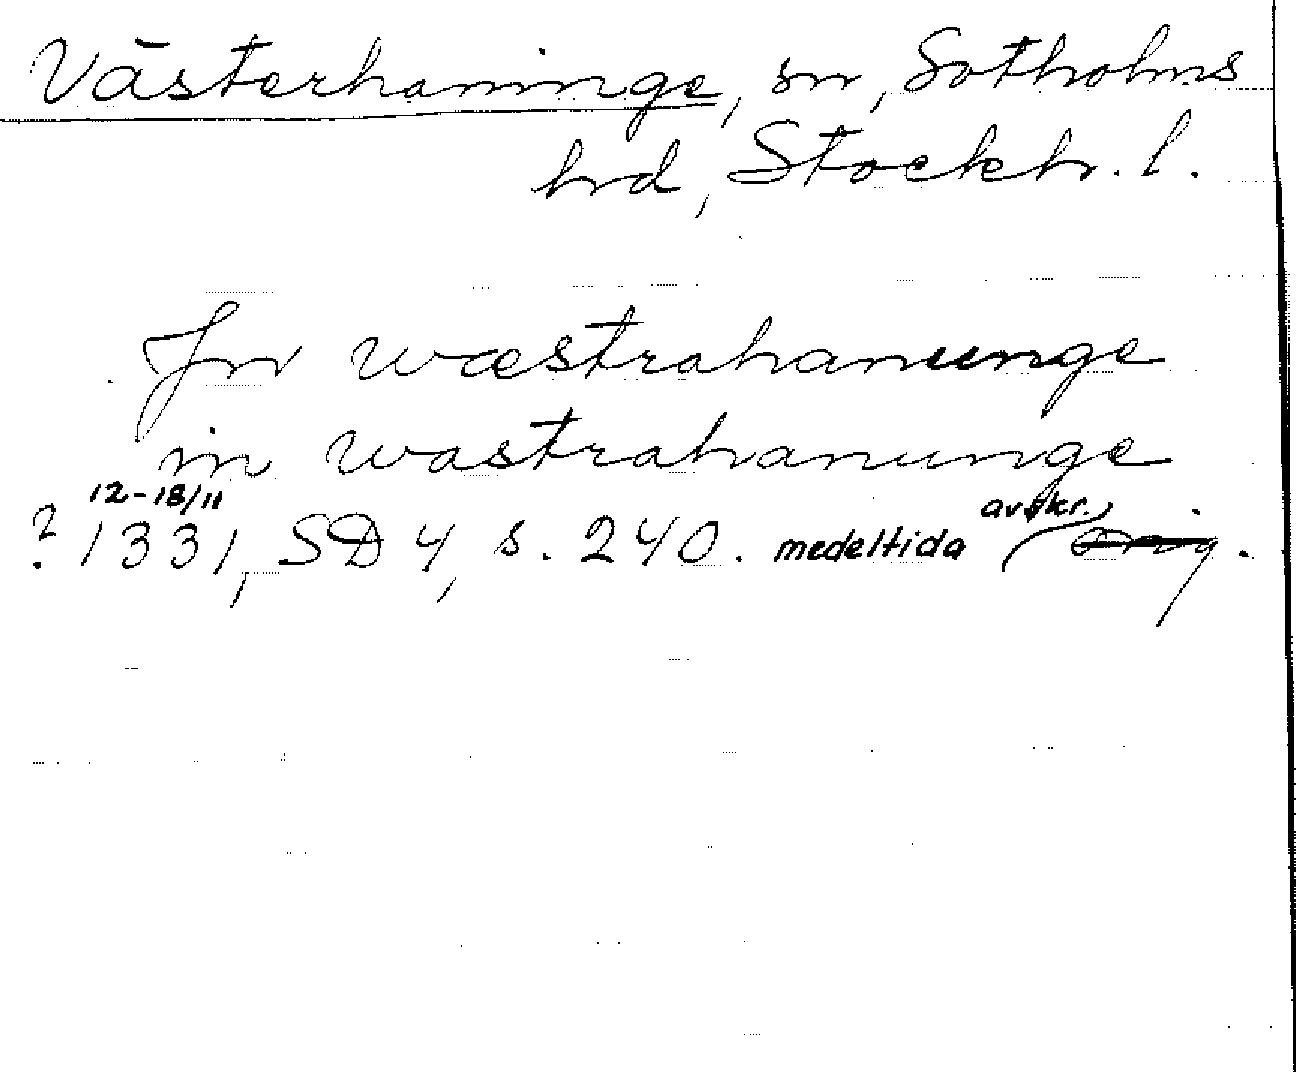 Västerhaninge, sn, Sotholms
hd, Stockh. l.
Jn wæstrahanunge
in wastrahanunge
12-18/11
? 1331, SD 4, s. 240. medeltida avskr. Orig.